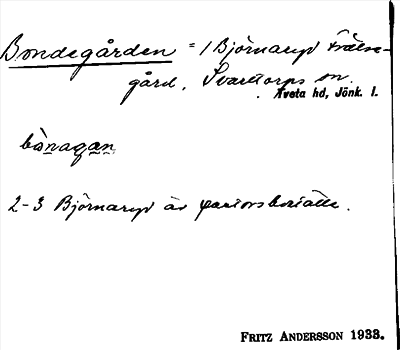 Bondegården = 1 Björnaryd Frälse-
gård, Svarttorps sn.
Tveta hd, Jönk. l.
bònagan
2-3 Björnaryd är pastorsboställe.
FRITZ ANDERSSON 1933.